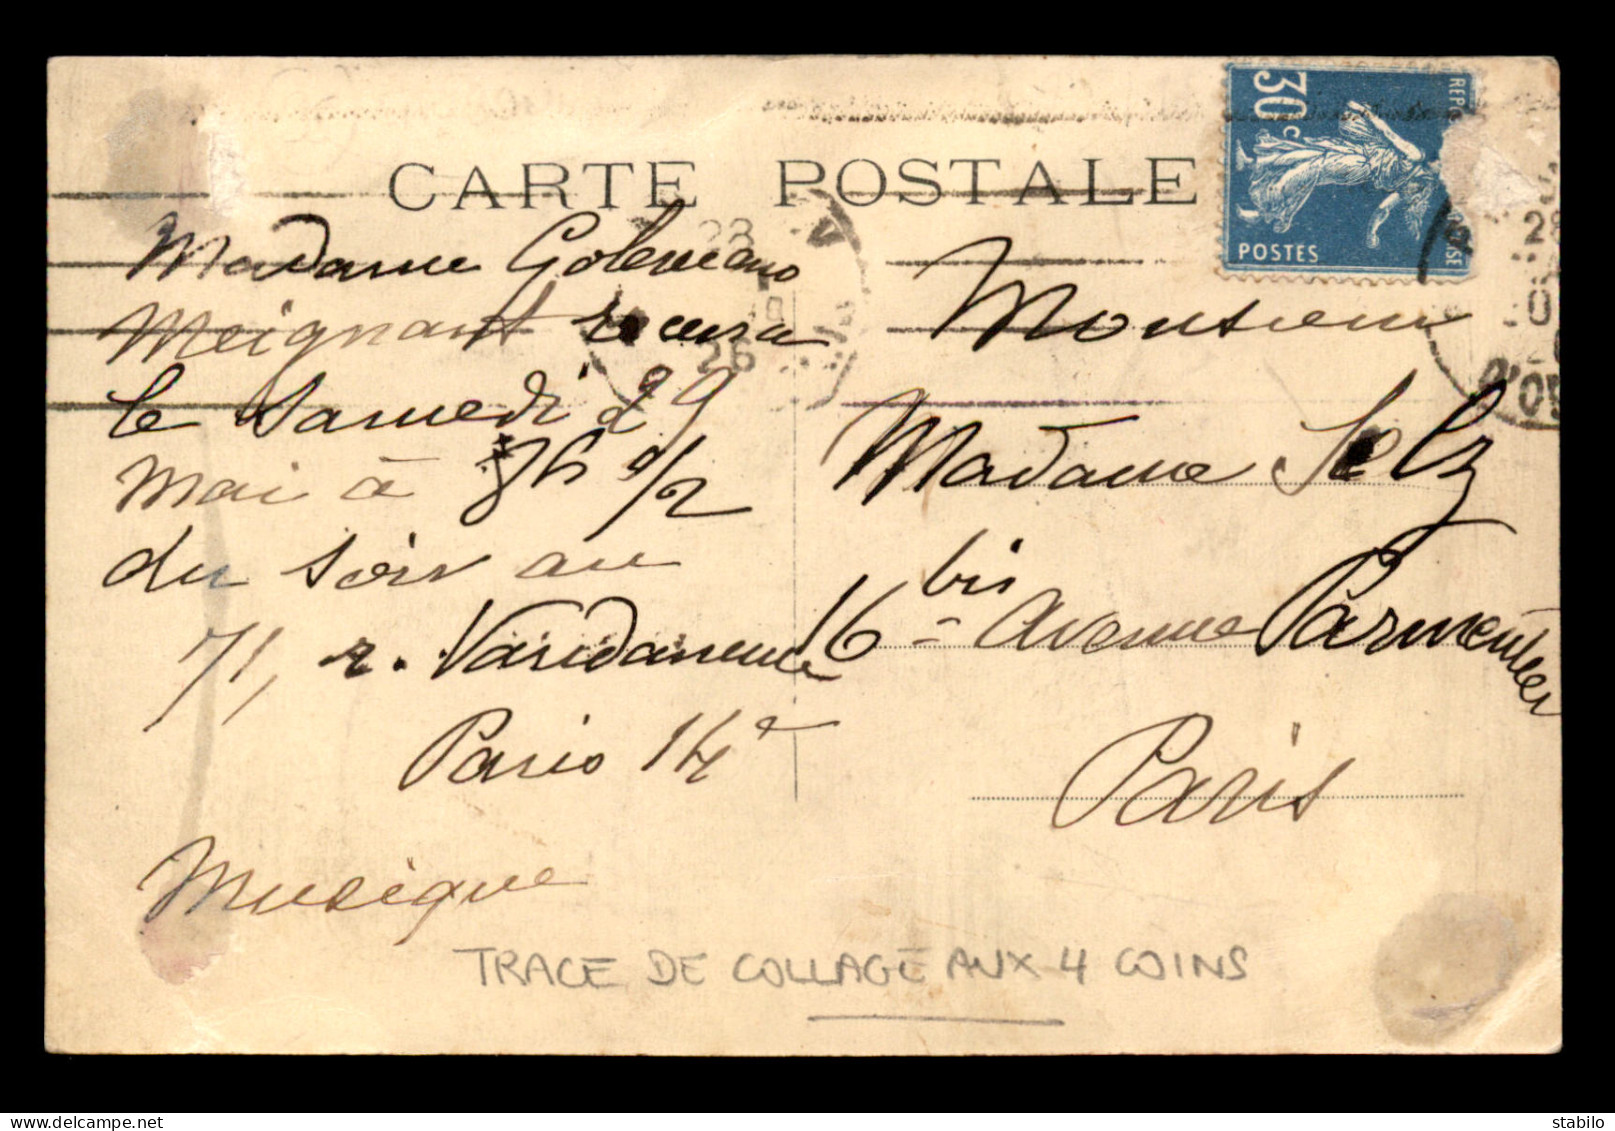 CARTE POSTALE
30c
POSTES
Madame
Meignant recevra
le Samedi 29
mai à 8h 1/2
du soir au
71, r.
Paris 14e
Musique
Monsieur
Madame Selz
16 bis Avenue Parmentier
Paris
28
26
TRACE DE COLLAGE AUX 4 COINS
stabilo